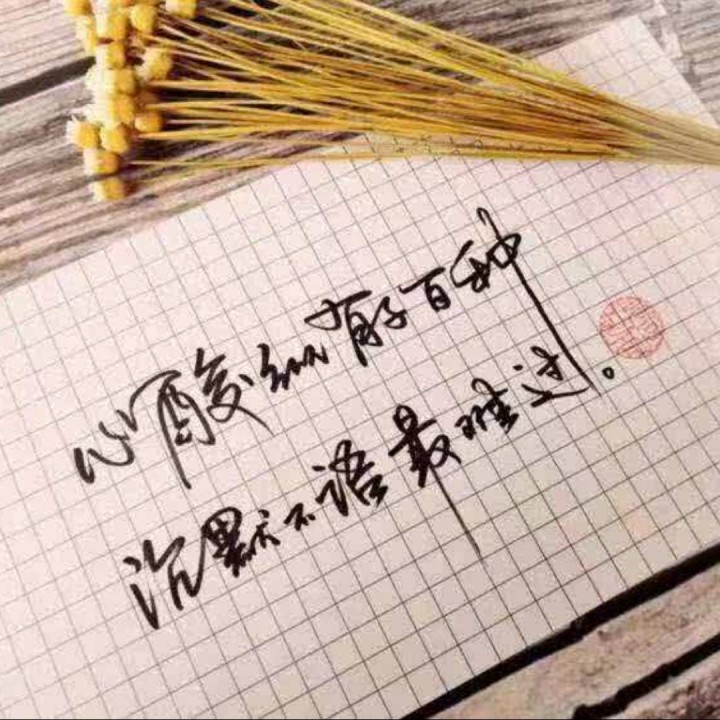 心酸纵有千百种
沉默不语最难过。